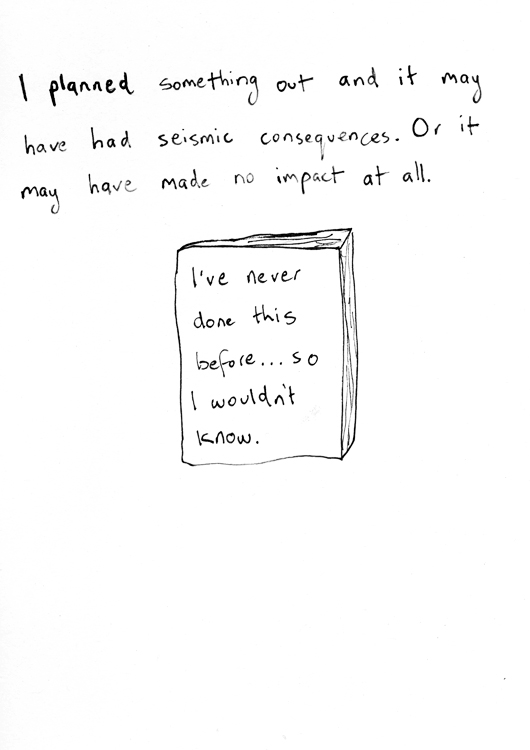 I planned something out and it may
have had seismic consequences. Or it
may have made no impact at all.
I've never
done this
before... so
I wouldn't
know.